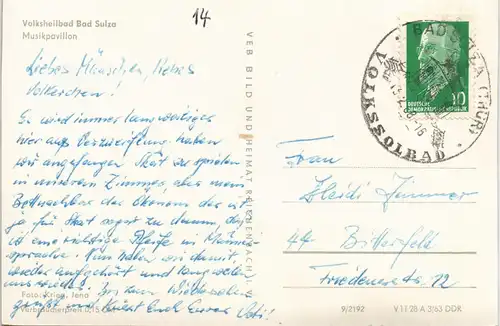 Volksheilbad Bad Sulza
Musikpavillon
14
Liebes Mäuschen, liebes
Volkerchen!
Es wird immer langweiliger
hier aus Verzweiflung haben
wir angefangen Skat zu spielen
in unserem Zimmer, aber mein
Bettnachbar der Ökonom der ist
ja für Skat sogar zu dumm, das
ist eine richtige Pfeife in Männer-
sprache. Nun haben wir damit
wieder aufgehört und langweilen
uns weiter. Bis zum Wiedersehen
grüßt und küßt Euch Euer Vati!
Foto: Krieg, Jena
Verbraucherpreis 0,15
VEB BILD UND HEIMAT REICHENBACH I. V.
BAD SULZA (THÜR)
VOLKSSOLBAD
DEUTSCHE
DEMOKRATISCHE REPUBLIK
10
Frau
Heidi Zimmer
44 Bitterfeld
Friedensstr. 12
9/2192
V 11 28 A 3/63 DDR